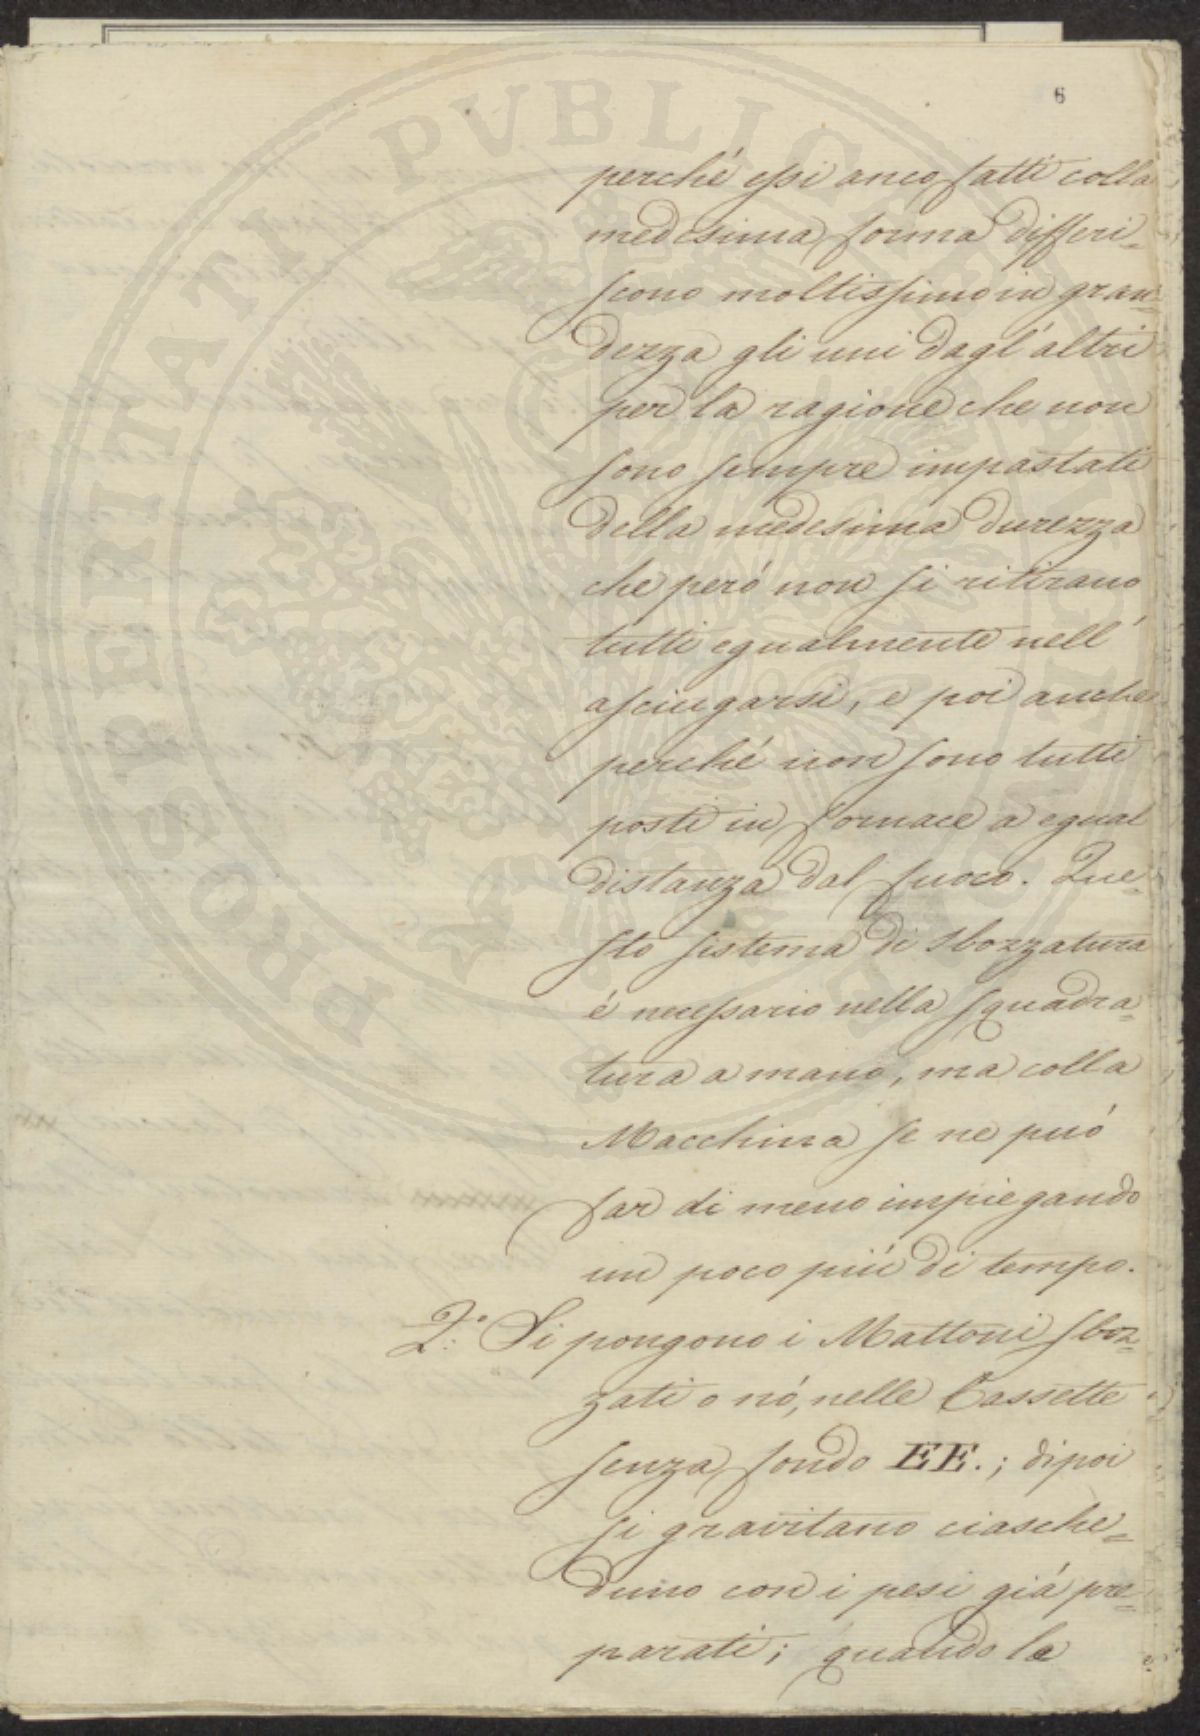 6
perché essi anco fatti colla
medesima forma differi=
scono moltissimo in gran=
dezza gli uni dagl'altri
per la ragione che non
sono sempre impastati
della medesima durezza
che peró non si ritirano
tutti egualmente nell'
asciugarsi, e poi anche
perché non sono tutti
posti in fornace a egual
distanza dal fuoco. Que=
sto sistema di sbozzatura
é necessario nella squadra=
tura a mano, ma colla
Macchina se ne puó
far di meno impiegando
un poco piú di tempo.
2.° Si pongono i Mattoni sboz=
zati o nó, nelle Cassette
senza fondo EE.; dipoi
si gravitano ciasche=
duno con i pesi giá pre=
parati; quando le
PUBLICAE
PROSPERITATI